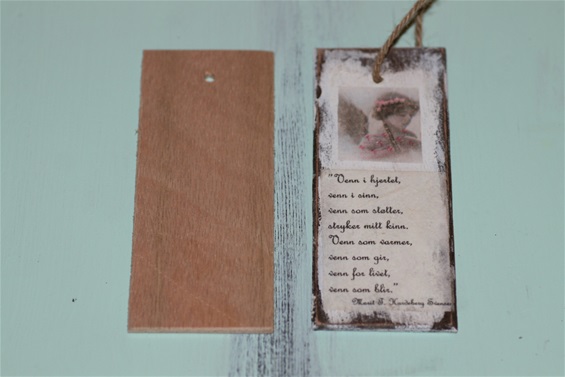 "Venn i hjertet,
venn i sinn,
venn som støtter,
stryker mitt kinn.
Venn som varmer,
venn som gir,
venn for livet,
venn som blir."
Marit